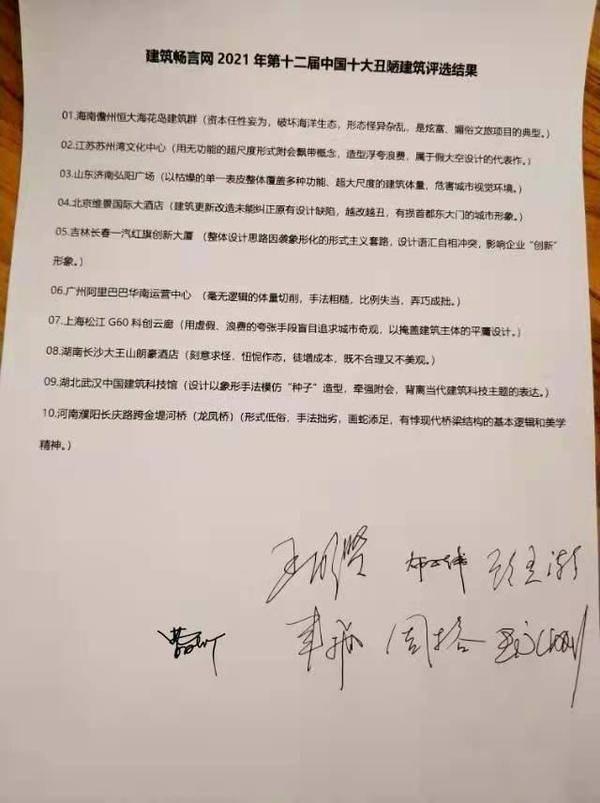 建筑畅言网 2021 年第十二届中国十大丑陋建筑评选结果
01.海南儋州恒大海花岛建筑群（资本任性妄为，破坏海洋生态，形态怪异杂乱，是炫富、媚俗文旅项目的典型。）
02.江苏苏州湾文化中心（用无功能的超尺度形式附会飘带概念，造型浮夸浪费，属于假大空设计的代表作。）
03.山东济南弘阳广场（以枯燥的单一表皮整体覆盖多种功能、超大尺度的建筑体量，危害城市视觉环境。）
04.北京维景国际大酒店（建筑更新改造未能纠正原有设计缺陷，越改越丑，有损首都东大门的城市形象。）
05.吉林长春一汽红旗创新大厦 （整体设计思路因袭象形化的形式主义套路，设计语汇自相冲突，影响企业“创新”
形象。）
06.广州阿里巴巴华南运营中心 （毫无逻辑的体量切削，手法粗糙，比例失当，弄巧成拙。）
07.上海松江 G60 科创云廊（用虚假、浪费的夸张手段盲目追求城市奇观，以掩盖建筑主体的平庸设计。）
08.湖南长沙大王山朗豪酒店（刻意求怪，忸怩作态，徒增成本，既不合理又不美观。）
09.湖北武汉中国建筑科技馆（设计以象形手法模仿“种子”造型，牵强附会，背离当代建筑科技主题的表达。）
10.河南濮阳长庆路跨金堤河桥（龙凤桥）（形式低俗，手法拙劣，画蛇添足，有悖现代桥梁结构的基本逻辑和美学
精神。）
王明贤
周榕